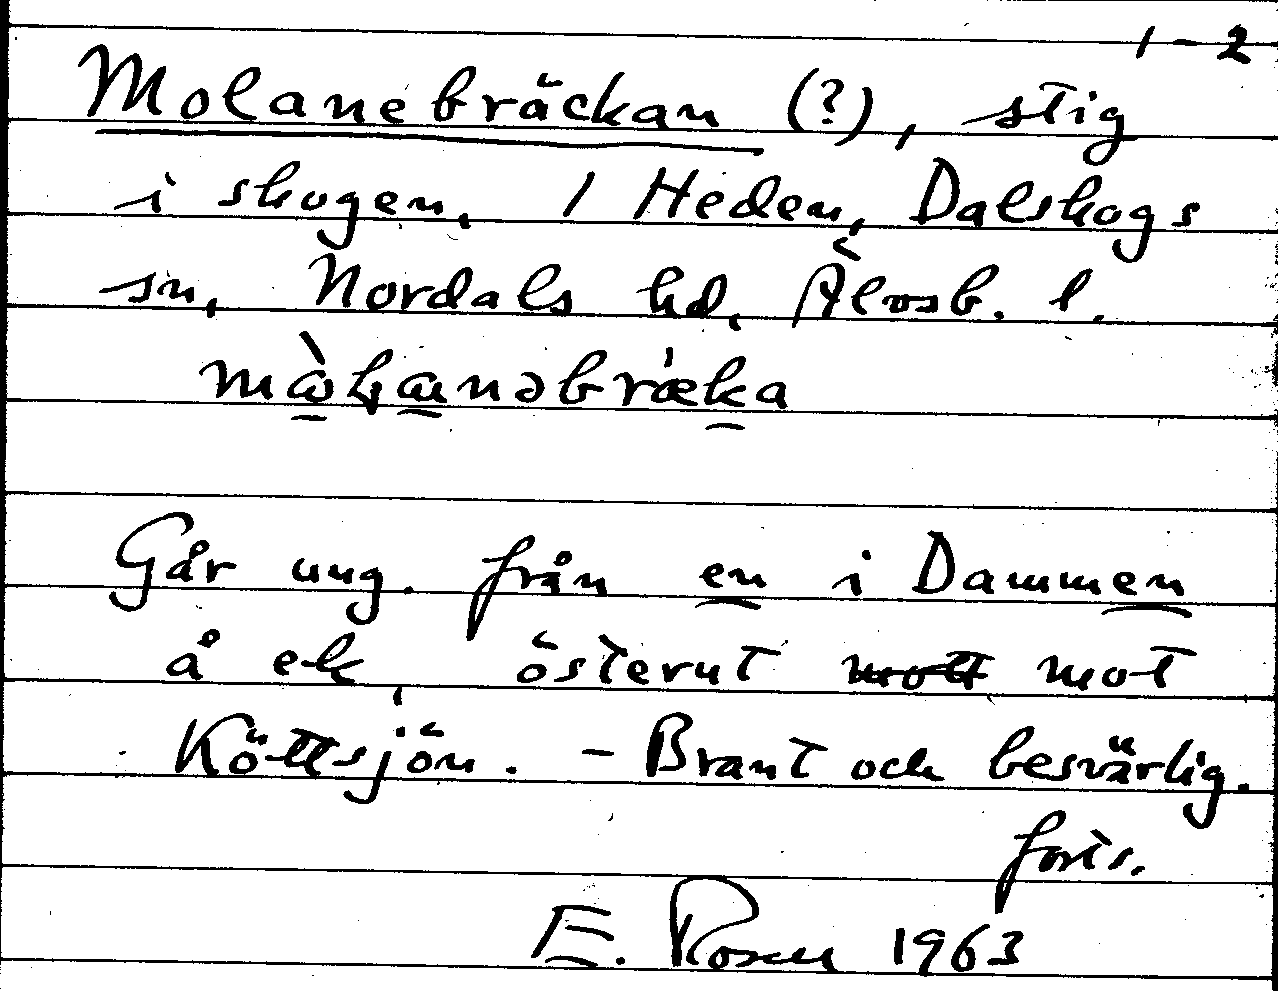 1-2
Molanebräckan (?), stig
i skogen, I Heden, Dalskogs
sn, Nordals hd, Älvsb. l.
Går ung. från en i Dammen
å ek, österut mot
Köttsjön. - Brant och besvärlig.
forts.
E. Rosen 1963